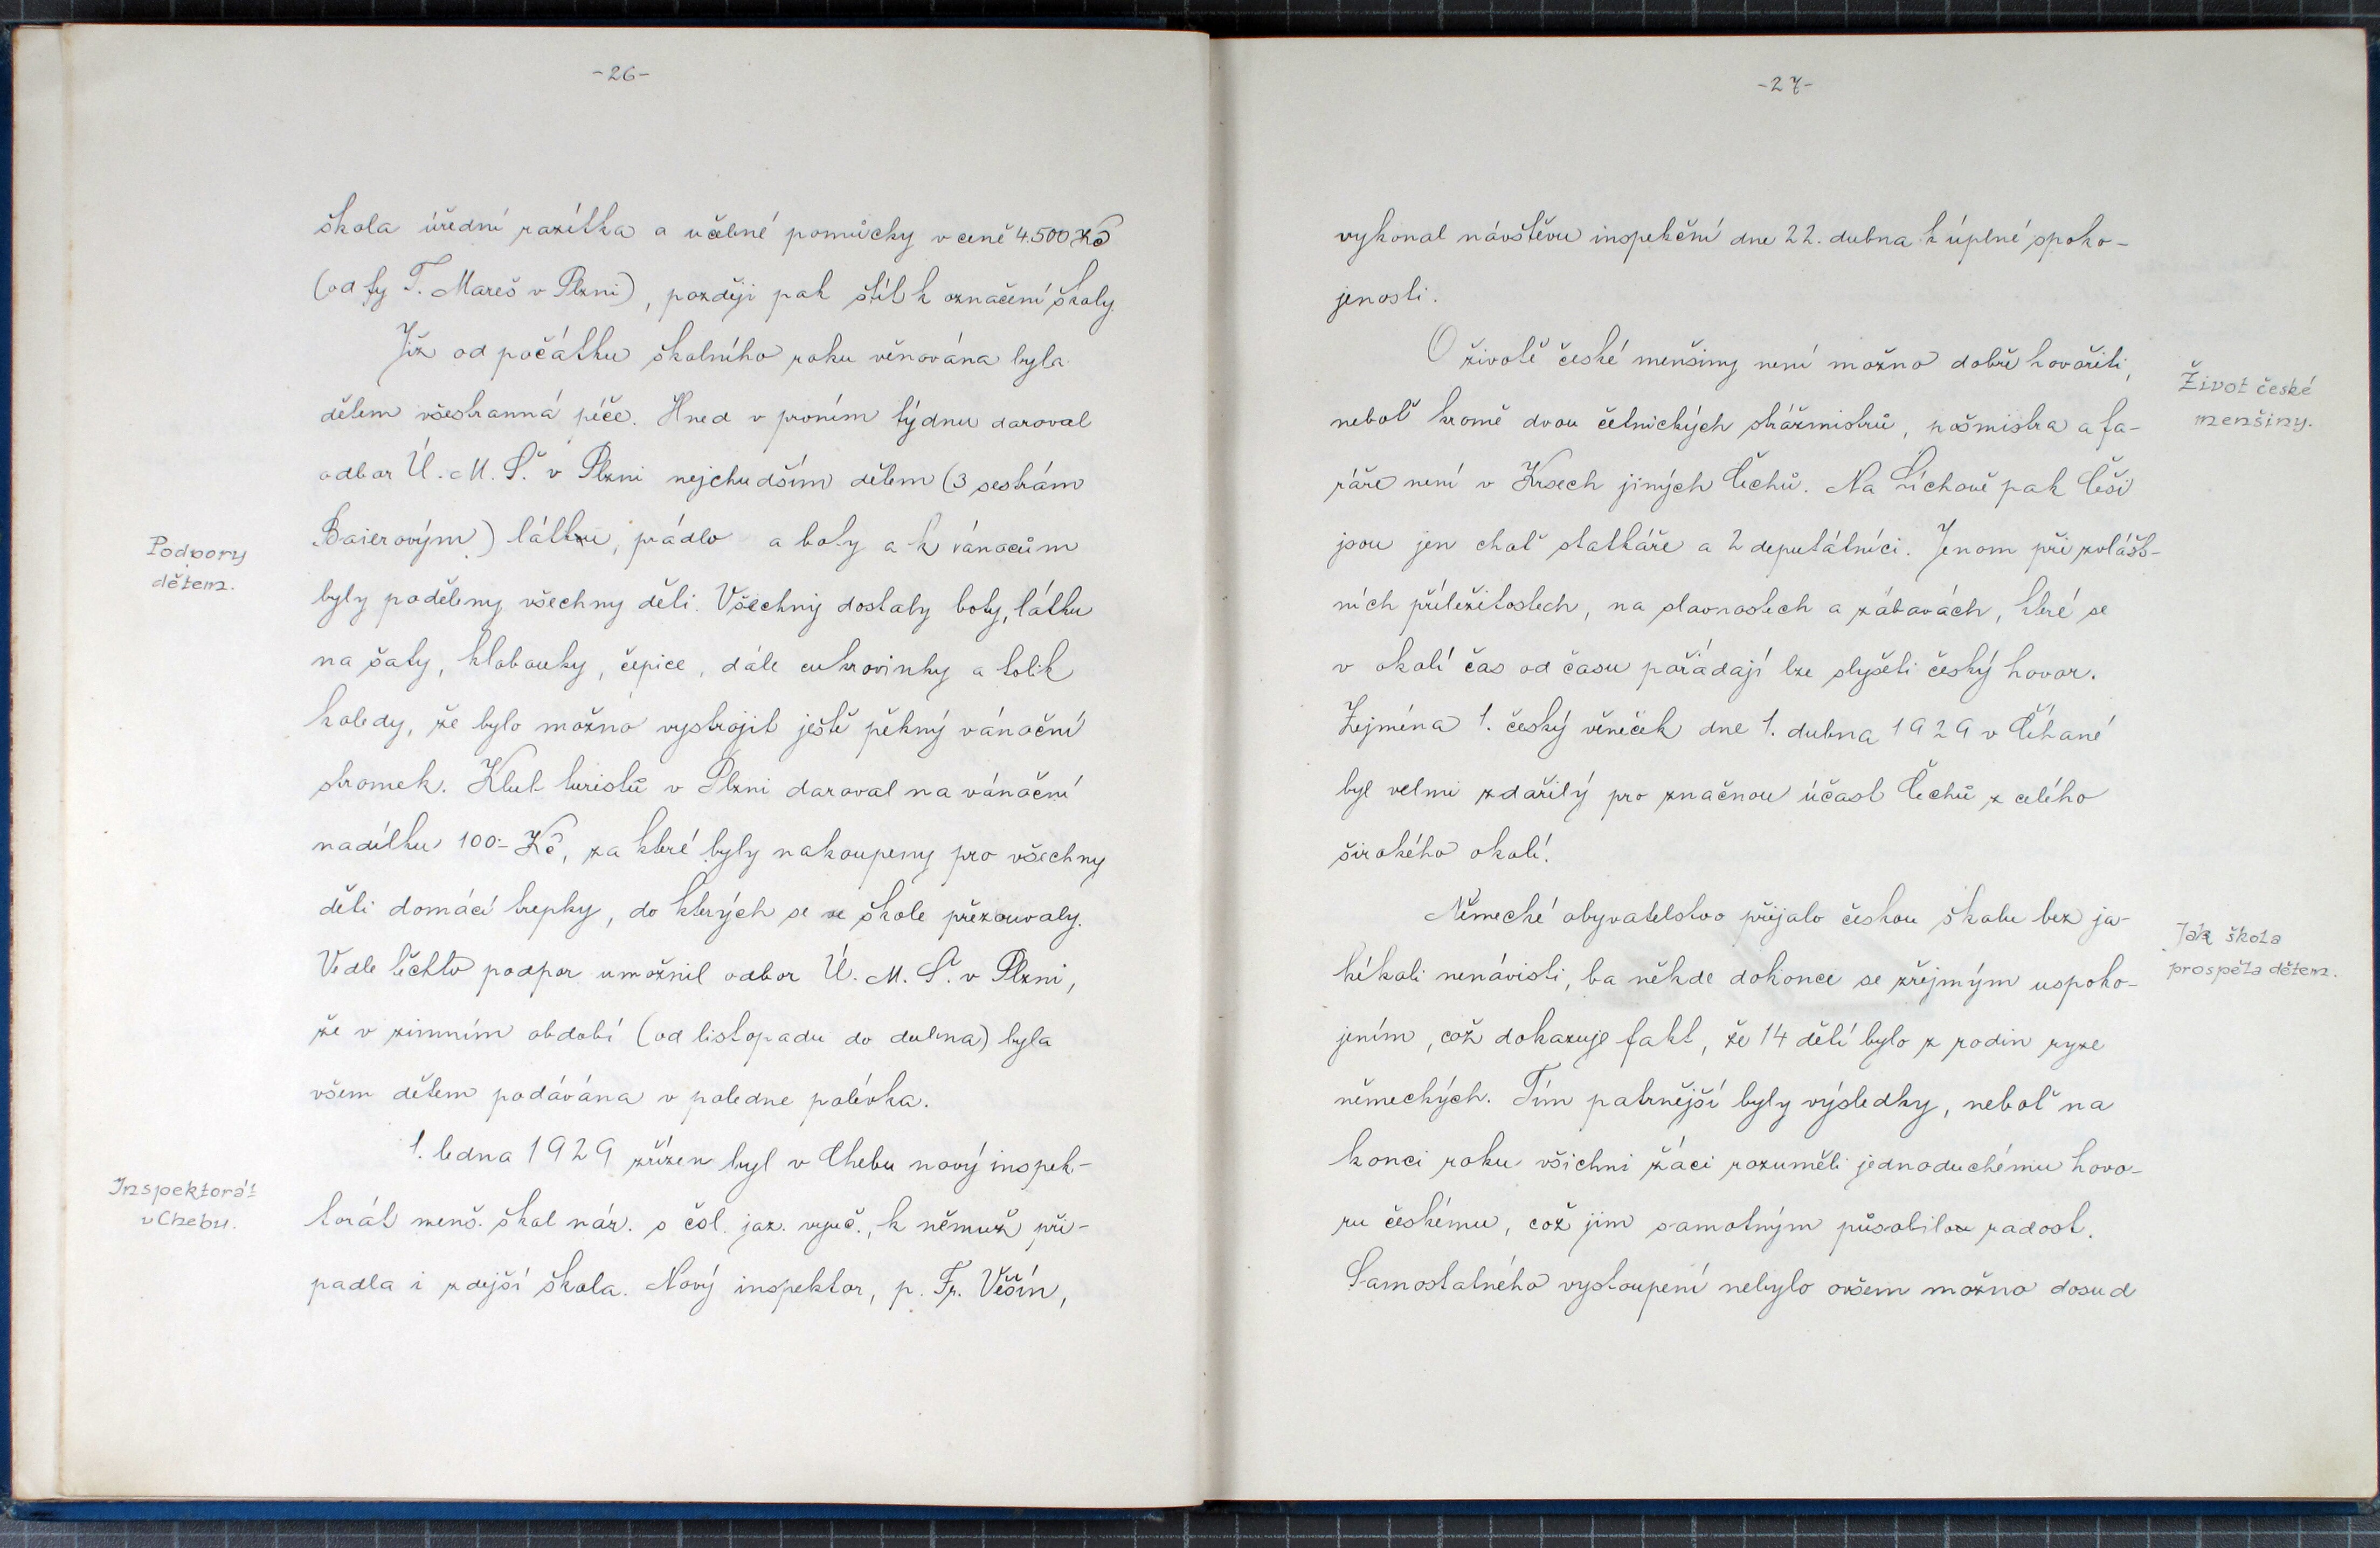 -26-
škola úřední razítka a učebné pomůcky v ceně 4.500 Kč
(od fy T. Mareš v Plzni), později pak štít k označení školy.
Již od počátku školního roku věnována byla
dětem všestranná péče. Hned v prvním týdnu daroval
odbor Ú. M. Š. v Plzni nejchudším dětem (3 sestrám
Baierovým) látku, prádlo a boty a k vánocům
Podpory
dětem.
byly poděleny všechny děti. Všechny dostaly boty, látku
na šaty, klobouky, čepice, dále cukrovinky a tolik
koledy, že bylo možno vystrojit ještě pěkný vánoční
stromek. Klub turistů v Plzni daroval na vánoční
nadílku 100.- Kč, za které byly nakoupeny pro všechny
děti domácí trepky, do kterých se ve škole přezouvaly.
Vedle těchto podpor umožnil odbor Ú. M. Š. v Plzni,
že v zimním období (od listopadu do dubna) byla
všem dětem podávána v poledne polévka.
1. ledna 1929 zřízen byl v Chebu nový inspek-
Inspektorát
v Chebu.
torát menš. škol nár. s čsl. jaz. vyuč., k němuž při-
padla i zdejší škola. Nový inspektor, p. Fr. Věšín,
-27-
vykonal návštěvu inspekční dne 22. dubna k úplné spoko-
jenosti.
O životě české menšiny není možno dobře hovořiti,
Život české
menšiny.
neboť kromě dvou četnických strážmistrů, pošmistra a fa-
ráře není v Krsech jiných Čechů. Na Líchově pak Češi
jsou jen choť statkáře a 2 deputátníci. Jenom při zvlášt-
ních příležitostech, na slavnostech a zábavách, které se
v okolí čas od času pořádají lze slyšeti český hovor.
Zejména 1. český věneček dne 1. dubna 1929 v Číhané
byl velmi zdařilý pro značnou účast Čechů z celého
širokého okolí.
Německé obyvatelstvo přijalo českou školu bez ja-
Jak škola
prospěla dětem.
kékoli nenávisti, ba někde dokonce se zřejmým uspoko-
jením, což dokazuje fakt, že 14 dětí bylo z rodin ryze
německých. Tím patrnější byly výsledky, neboť na
konci roku všichni žáci rozuměli jednoduchému hovo-
ru českému, což jim samotným působilo radost.
Samostatného vystoupení nebylo ovšem možno dosud